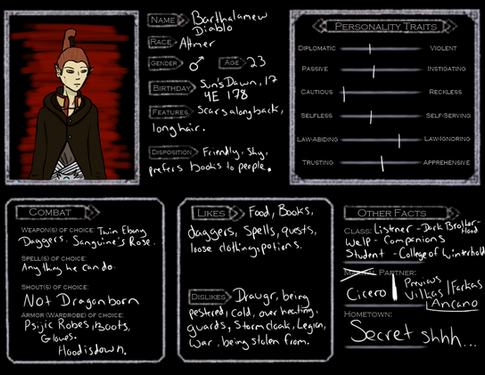 Name Barthalamew
Diablo
Race Altmer
Gender ♂ Age 23
Birthday Sun's Dawn, 17
4E 178
Features Scars along back,
long hair.
Disposition Friendly, shy,
prefers books to people.
Personality Traits
Diplomatic Violent
Passive Instigating
Cautious Reckless
Selfless Self-Serving
Law-Abiding Law-Ignoring
Trusting Apprehensive
Combat
Weapon(s) of choice: Twin Ebony
Daggers. Sanguine's Rose.
Spell(s) of choice:
Anything he can do.
Shout(s) of choice:
Not Dragonborn
Armor (Wardrobe) of choice:
Psijic Robes, Boots,
Gloves.
Hood is down.
Likes Food, Books,
daggers, Spells, quests,
loose clothing, potions.
Dislikes Draugr, being
pestered, cold, over heating,
guards, Stormcloak, Legion,
War, being stolen from.
Other Facts
Class: Listener - Dark Brother-
Hood
Welp - Companions
Student - College of Winterhold
Partner:
Cicero Previous
Vilkas/Farkas
Ancano
Hometown:
Secret shhh...